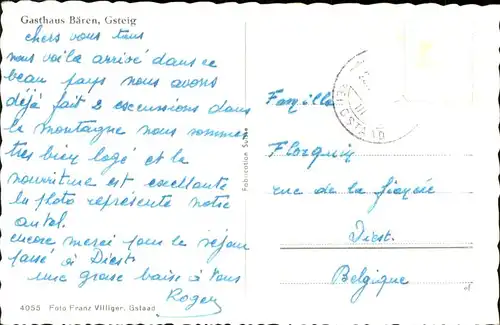 Gasthaus Bären, Gsteig
chers vous tous
nous voila arrivé dans ce
beau pays nous avons
déjà fait 2 excussions dans
la montagne nous sommes
tres bien logé et la
nourriture est exellante
la photo représente notre
autel.
encore merci pour le séjour
passé à Diest
une grosse baise à vous
Roger
4055 Foto Franz Villiger, Gstaad
Fabrication Suisse
Famille
Florquin
rue de la
Diest.
Belgique